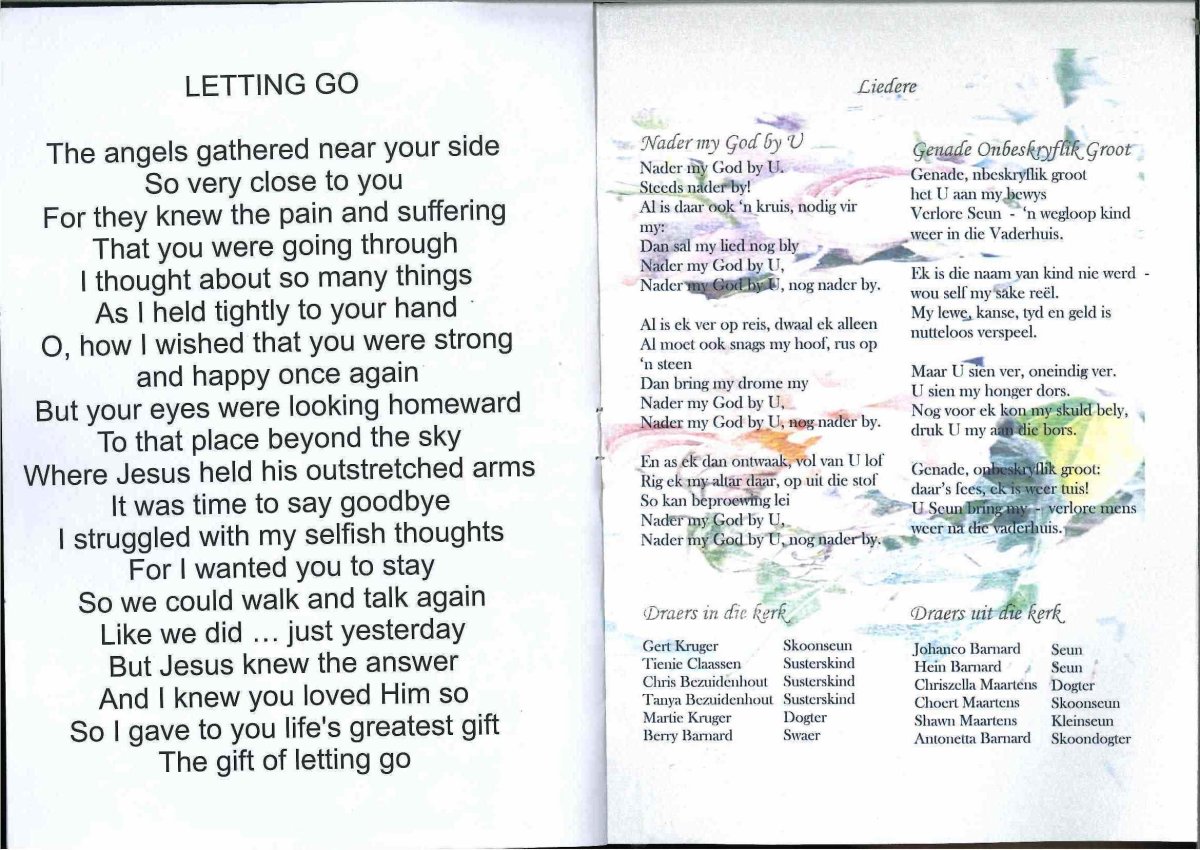 LETTING GO
The angels gathered near your side
So very close to you
For they knew the pain and suffering
That you were going through
I thought about so many things
As I held tightly to your hand
O, how I wished that you were strong
and happy once again
But your eyes were looking homeward
To that place beyond the sky
Where Jesus held his outstretched arms
It was time to say goodbye
I struggled with my selfish thoughts
For I wanted you to stay
So we could walk and talk again
Like we did … just yesterday
But Jesus knew the answer
And I knew you loved Him so
So I gave to you life's greatest gift
The gift of letting go
Liedere
Nader my God by U
Nader my God by U.
Steeds nader by!
Al is daar ook 'n kruis, nodig vir
my:
Dan sal my lied nog bly
Nader my God by U,
Nader my God by U, nog nader by.
Al is ek ver op reis, dwaal ek alleen
Al moet ook snags my hoof, rus op
'n steen
Dan bring my drome my
Nader my God by U,
Nader my God by U, nog nader by.
En as ek dan ontwaak, vol van U lof
Rig ek my altar daar, op uit die stof
So kan beproewing lei
Nader my God by U,
Nader my God by U, nog nader by.
Genade Onbeskryflik Groot
Genade, nbeskryflik groot
het U aan my bewys
Verlore Seun - 'n wegloop kind
weer in die Vaderhuis.
Ek is die naam van kind nie werd -
wou self my sake reël.
My lewe, kanse, tyd en geld is
nutteloos verspeel.
Maar U sien ver, oneindig ver.
U sien my honger dors.
Nog voor ek kon my skuld bely,
druk U my aan die bors.
Genade, onbeskryflik groot:
daar's fees, ek is weer tuis!
U Seun bring my - verlore mens
weer na die vaderhuis.
Draers in die kerk
Gert Kruger Skoonseun
Tienie Claassen Susterskind
Chris Bezuidenhout Susterskind
Tanya Bezuidenhout Susterskind
Martie Kruger Dogter
Berry Barnard Swaer
Draers uit die kerk
Johanco Barnard Seun
Hein Barnard Seun
Chriszella Maartens Dogter
Choert Maartens Skoonseun
Shawn Maartens Kleinseun
Antonetta Barnard Skoondogter